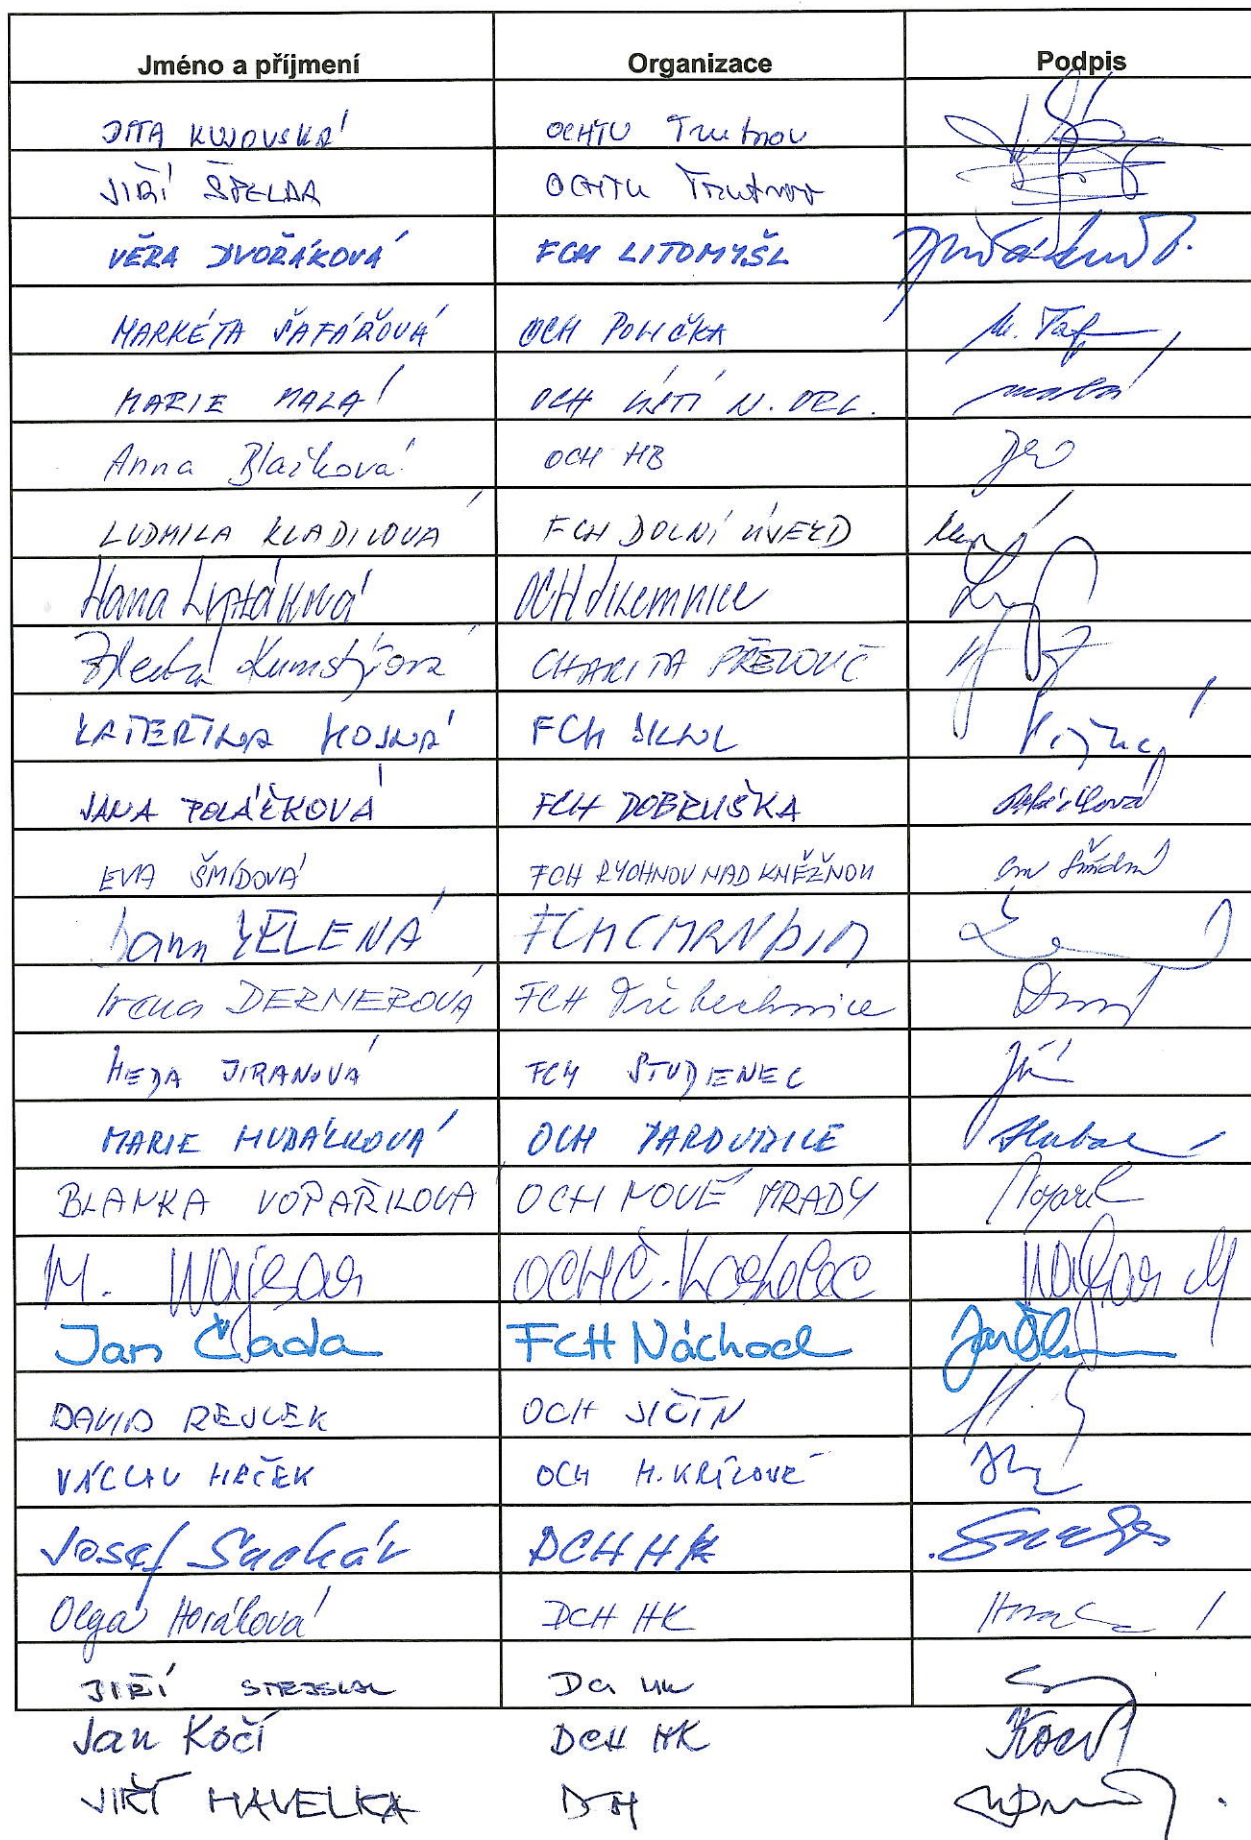 Jméno a příjmení Organizace Podpis
DITA KUJOVSKÁ OCHTU Trutnov
JIŘÍ ŠPELDA OCHTU Trutnov
VĚRA DVOŘÁKOVÁ FCH LITOMYŠL
MARKÉTA ŠAFÁŘOVÁ OCH POLIČKA M.
MARIE MALÁ OCH ÚSTÍ N. ORL. Malá
Anna Blažková OCH HB
LUDMILA KLADIVOVÁ FCH DOLNÍ ÚJEZD
Hana Liptáková OCH Jilemnice
Zdenka Kumstýřová CHARITA PŘELOUČ
KATEŘINA HOJNÁ FCH
JANA POLÁČKOVÁ FCH DOBRUŠKA Poláčková
EVA ŠMÍDOVÁ FCH RYCHNOV NAD KNĚŽNOU
ZELENÁ FCH CHRUDIM
Irena DERNEROVÁ FCH Třebechovice
HEDA JIRANOVÁ FCH STUDENEC
MARIE HUBÁLKOVÁ OCH PARDUBICE
BLANKA VOPAŘILOVÁ OCH NOVÉ HRADY
M. Wajsar OCHČ. Kostelec Wajsar M
Jan Čada FCH Náchod
DAVID REJLEK OCH JIČÍN
VÁCLAV HRČEK OCH H.
Josef Suchár DCH HK
Olga Horáková DCH HK
JIŘÍ STEJSKAL DCH HK
Jan Kočí DCH HK Kočí
JIŘÍ HAVELKA